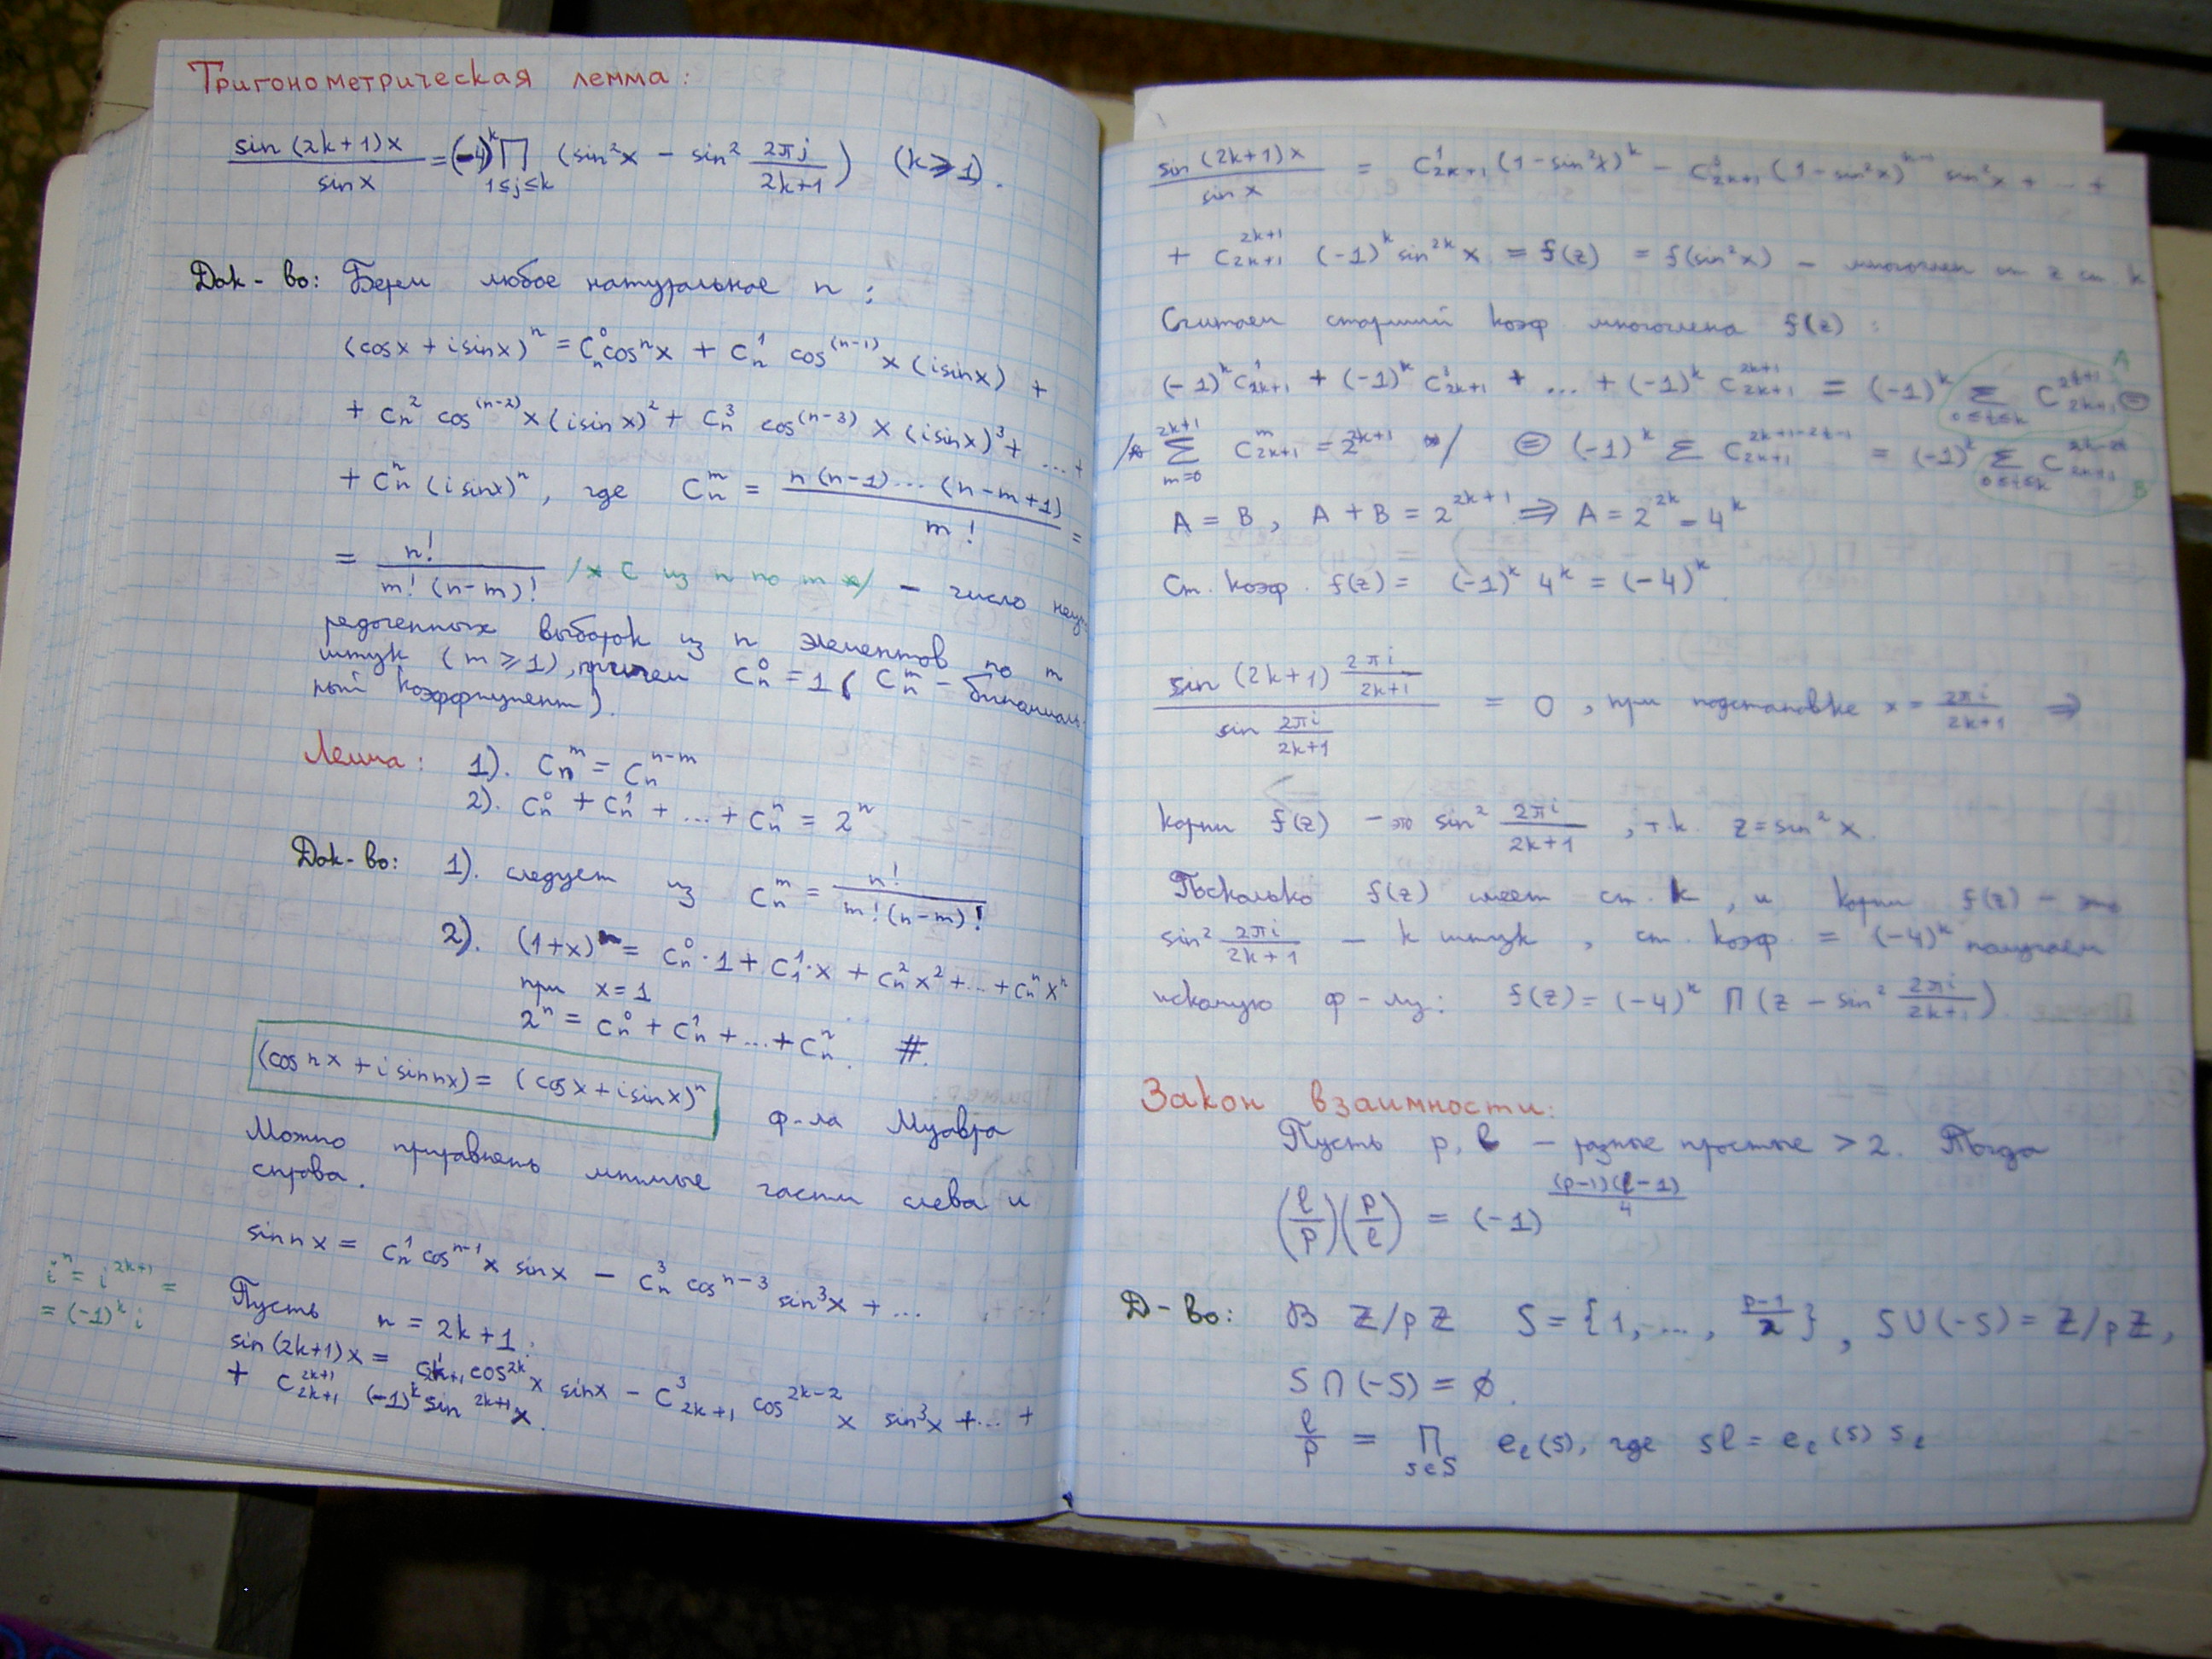 Тригонометрическая лемма:
sin(2k+1)x / sin x = (-4)^k ∏_{1≤j≤k} (sin²x − sin² 2πj/(2k+1)) (k ≥ 1).
Док-во: Берем любое натуральное n:
(cosx + isinx)^n = C_n^0 cos^n x + C_n^1 cos^(n-1) x (isinx) +
+ C_n^2 cos^(n-2) x (isinx)^2 + C_n^3 cos^(n-3) x (isinx)^3 + ... +
+ C_n^n (isinx)^n, где C_n^m = n(n-1)...(n-m+1) / m! =
= n! / m!(n-m)! /* C из n по m */ – число неупо-
редоченных выборок из n элементов по m
штук (m ≥ 1), причем C_n^0 = 1 ( C_n^m – биномиаль-
ный коэффициент).
Лемма: 1). C_n^m = C_n^{n-m}
2). C_n^0 + C_n^1 + ... + C_n^n = 2^n
Док-во: 1). следует из C_n^m = n! / m!(n-m)!
2). (1+x)^n = C_n^0 · 1 + C_1^1 · x + C_n^2 x^2 + ... + C_n^n x^n
при x = 1
2^n = C_n^0 + C_n^1 + ... + C_n^n. #.
(cos nx + i sin nx) = (cosx + isinx)^n ф-ла Муавра
Можно приравнять мнимые части слева и
справа.
sin nx = C_n^1 cos^{n-1} x sinx − C_n^3 cos^{n-3} sin^3 x + ...
i^n = i^{2k+1} =
= (-1)^k i
Пусть n = 2k+1.
sin(2k+1)x = C_{2k+1}^1 cos^{2k} x sinx − C_{2k+1}^3 cos^{2k-2} x sin^3 x + ... +
+ C_{2k+1}^{2k+1} (-1)^k sin^{2k+1} x.
sin(2k+1)x / sin x = C_{2k+1}^1 (1-sin²x)^k − C_{2k+1}^3 (1-sin²x)^{k-1} sin²x + ... +
+ C_{2k+1}^{2k+1} (-1)^k sin^{2k} x = f(z) = f(sin²x) – многочлен от z ст. k
Считаем старший коэф. многочлена f(z):
(-1)^k C_{2k+1}^1 + (-1)^k C_{2k+1}^3 + ... + (-1)^k C_{2k+1}^{2k+1} = (-1)^k Σ_{0≤t≤k} C_{2k+1}^{2t+1} ⊜ A
/* Σ_{m=0}^{2k+1} C_{2k+1}^m = 2^{2k+1} */ ⊜ (-1)^k Σ C_{2k+1}^{2k+1-2t-1} = (-1)^k Σ_{0≤t≤k} C_{2k+1}^{2k-2t} B
A = B, A + B = 2^{2k+1} ⇒ A = 2^{2k} = 4^k
Ст. коэф. f(z) = (-1)^k 4^k = (-4)^k.
sin(2k+1) 2πi/(2k+1) / sin 2πi/(2k+1) = 0, при подстановке x = 2πi/(2k+1) ⇒
Корни f(z) – это sin² 2πi/(2k+1), т.к. z = sin²x.
Поскольку f(z) имеет ст. k, и корни f(z) – это
sin² 2πi/(2k+1) – k штук, ст. коэф. = (-4)^k получаем
искомую ф-лу: f(z) = (-4)^k ∏(z − sin² 2πi/(2k+1)).
Закон взаимности:
Пусть p, l – разные простые > 2. Тогда
(l/p)(p/l) = (-1)^{(p-1)(l-1)/4}
Д-во: В Z/pZ S = {1, ..., (p-1)/2}, S∪(-S) = Z/pZ,
S∩(-S) = ∅.
l/p = ∏_{s∈S} e_l(s), где sl = e_l(s) s_l